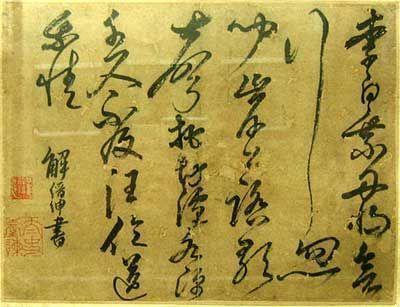 李白乘舟將欲
行忽
聞岸上踏歌
聲桃花潭水深
千尺不及汪倫送
我情
解縉紳書